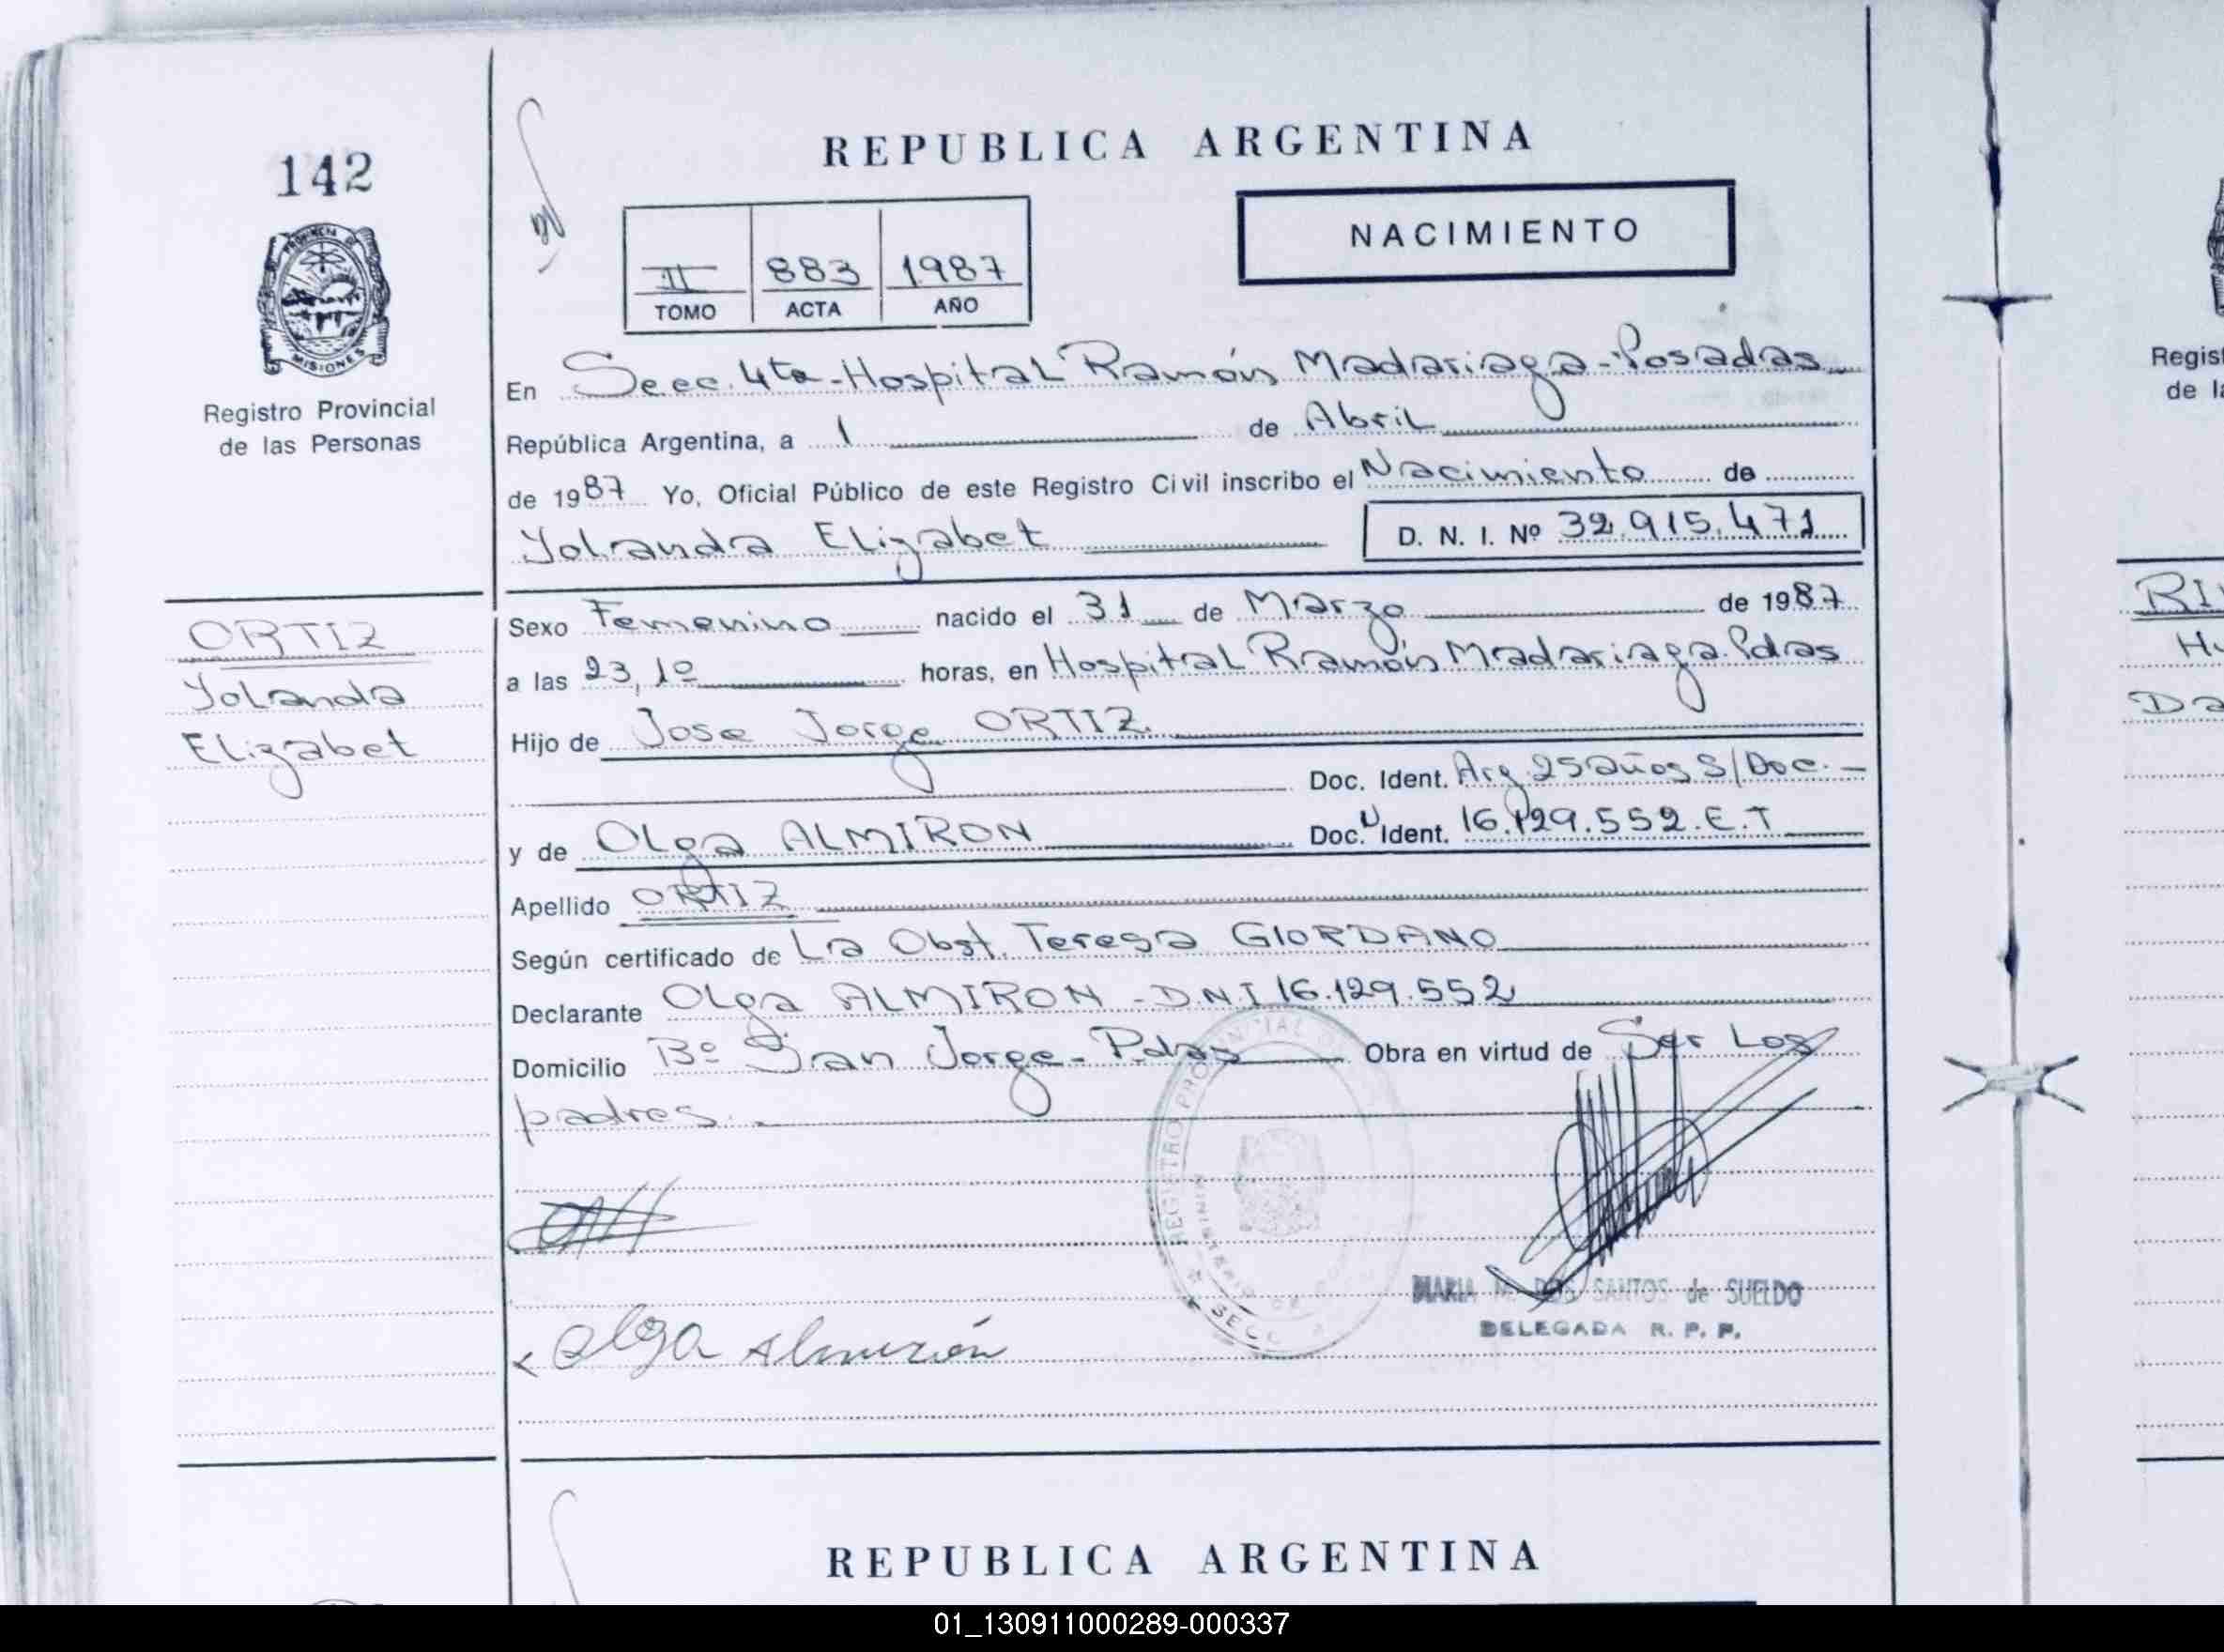 142
PROVINCIA DE
MISIONES
Registro Provincial
de las Personas
ORTIZ
Yolanda
Elizabet
REPUBLICA ARGENTINA
II 883 1987
TOMO ACTA AÑO
NACIMIENTO
En Secc. 4ta - Hospital Ramón Madariaga - Posadas
República Argentina, a 1 de Abril
de 1987 Yo, Oficial Público de este Registro Civil inscribo el Nacimiento de
Yolanda Elizabet D. N. I. Nº 32.915.471
Sexo Femenino nacido el 31 de Marzo de 1987
a las 23,10 horas, en Hospital Ramón Madariaga. Pdas
Hijo de Jose Jorge ORTIZ
Doc. Ident. Arg. 25 años S/Doc. -
y de Olga ALMIRON Doc. Ident. 16.129.552. E.T
Apellido ORTIZ
Según certificado de La Obst. Teresa GIORDANO
Declarante Olga ALMIRON - D.N.I 16.129.552
Domicilio Bº San Jorge - Pdas Obra en virtud de Ser Los
padres.
REGISTRO PROVINCIAL DE
MINISTERIO DE
SECC
MARIA M. DOS SANTOS de SUELDO
DELEGADA R. P. P.
Olga Almirón
REPUBLICA ARGENTINA
Regist
de la
01_130911000289-000337